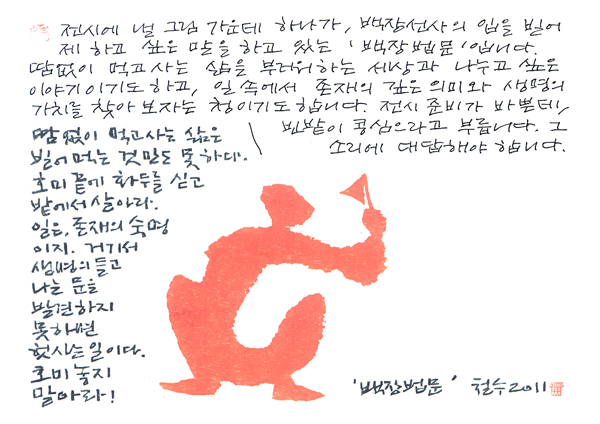 전시에 낼 그림 가운데 하나가, 백장선사의 입을 빌어
제 하고 싶은 말을 하고 있는 '백장법문'입니다.
땀없이 먹고 사는 삶을 부러워하는 세상과 나누고 싶은
이야기이기도 하고, 일 속에서 존재의 깊은 의미와 생명의
가치를 찾아 보자는 청이기도 합니다. 전시 준비가 바쁜데,
빈밭이 콩심으라고 부릅니다. 그
소리에 대답해야 합니다.
땀없이 먹고사는 삶은
빌어먹는 것만도 못하다.
호미 끝에 화두를 싣고
밭에서 살아라.
일은, 존재의 숙명
이지. 거기서
생명의 들고
나는 문을
발견하지
못하면
헛사는 일이다.
호미 놓지
말아라!
'백장법문' 철수 2011